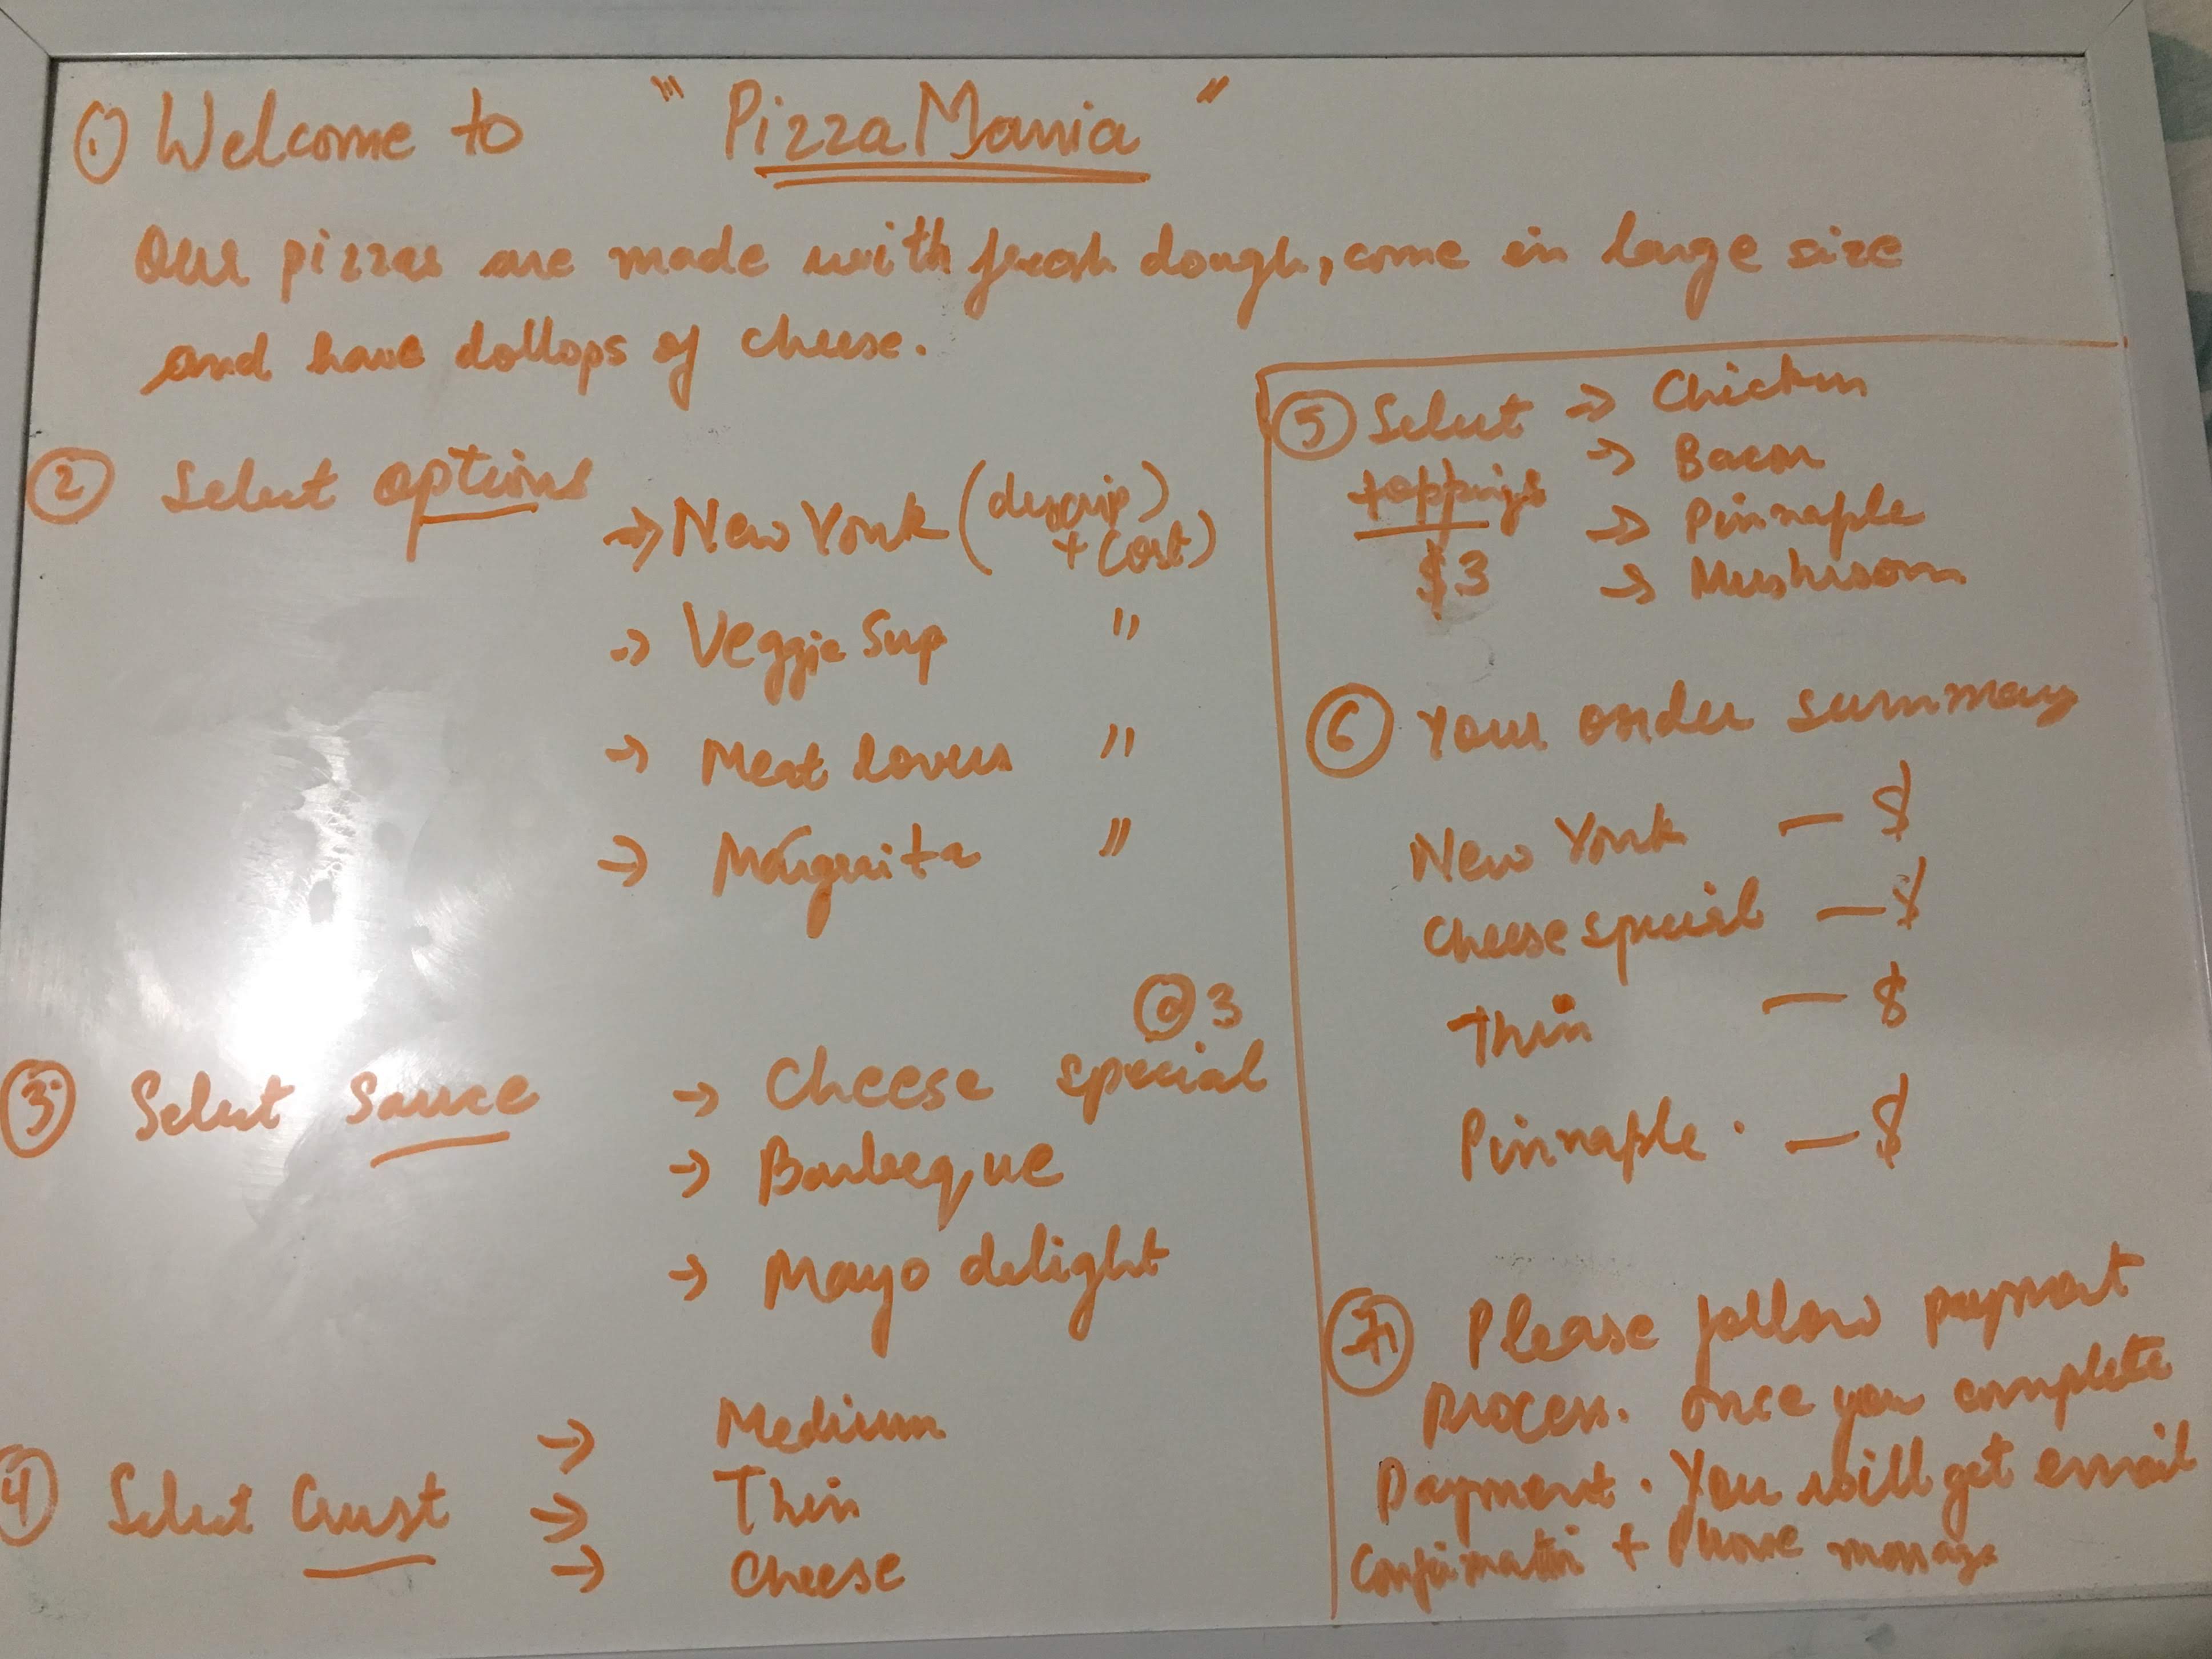 ① Welcome to "PizzaMania"
Our pizzas are made with fresh dough, come in large size
and have dollops of cheese.
② Select options
→ New York (descrip)
+ cost)
→ Veggie Sup "
→ Meat lovers "
→ Margrita "
③ Select Sauce
@3
→ Cheese special
→ Barbeque
→ Mayo delight
④ Select Crust
→ Medium
→ Thin
→ Cheese
⑤ Select → Chicken
toppings → Bacon
$3 → Pinnaple
→ Mushroom
⑥ Your order summary
New York — $
Cheese special — $
Thin — $
Pinnaple . — $
⑦ Please follow payment
process. once you complete
Payment. You will get email
Confirmation + Phone message